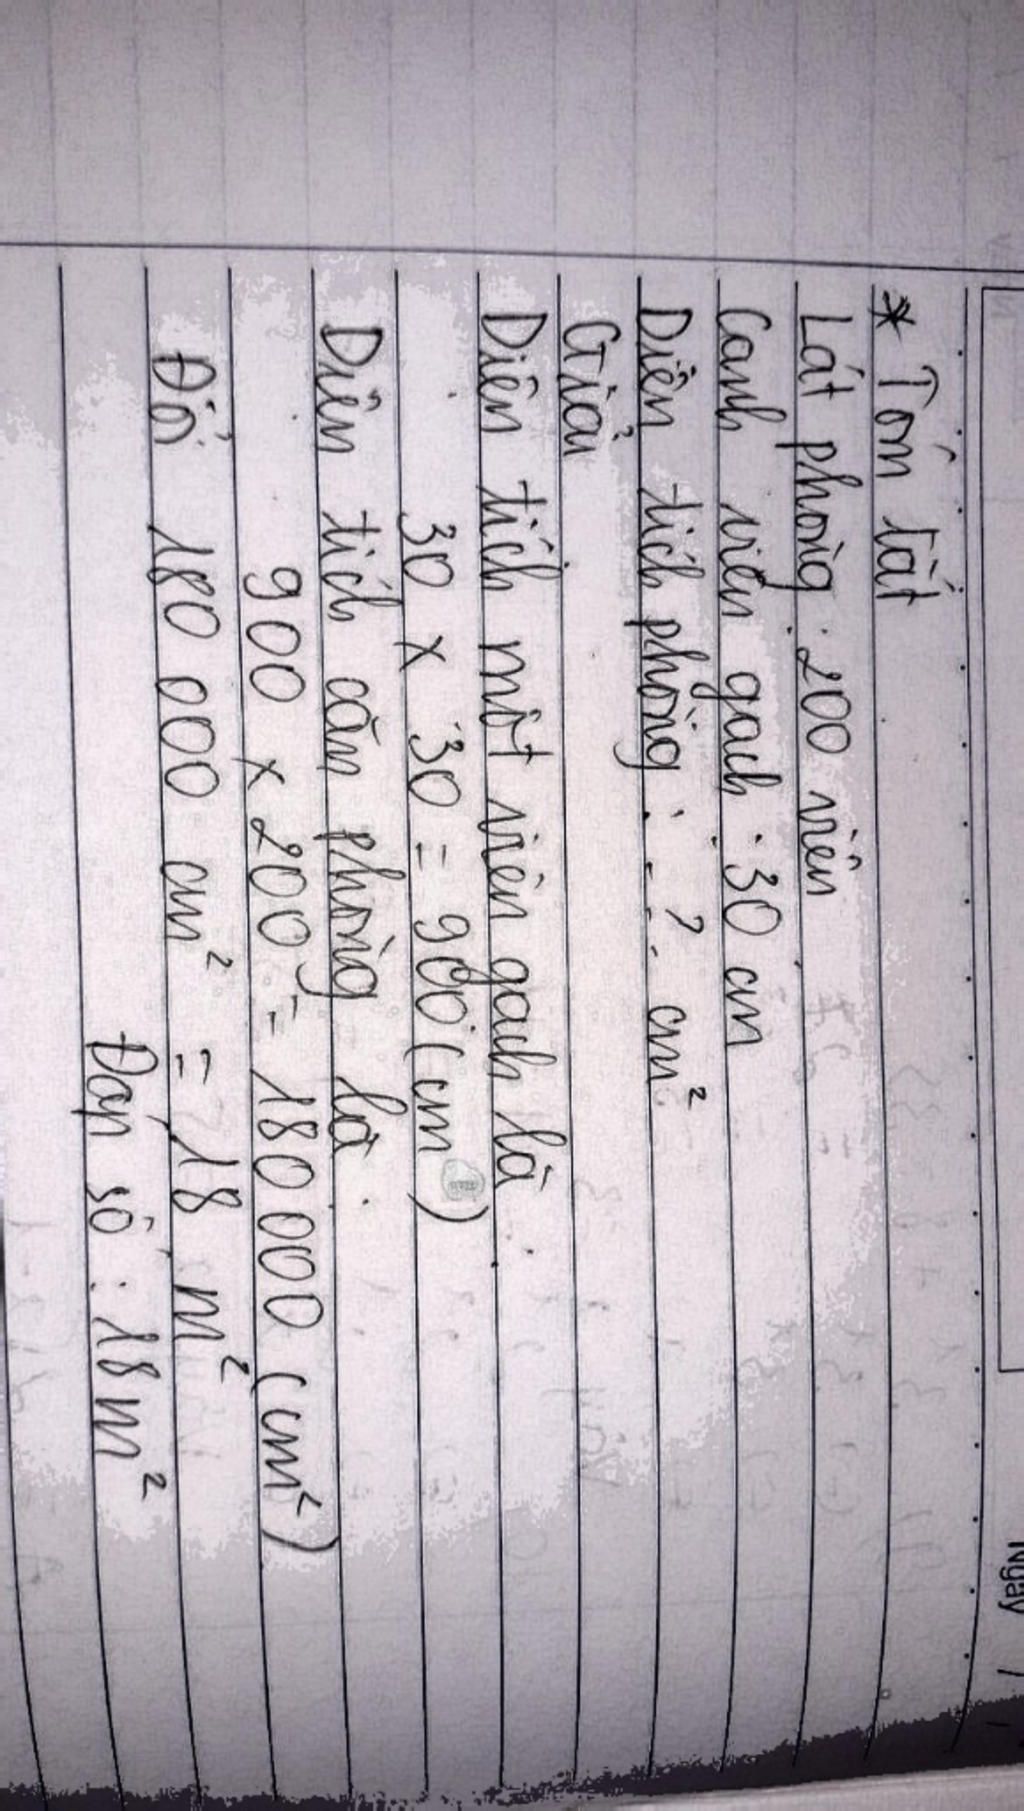 Ngày / /
* Tóm tắt
Lát phòng : 200 viên
Cạnh viên gạch : 30 cm
Diện tích phòng : . . ? . cm²
Giải
Diện tích một viên gạch là :
30 x 30 = 900 (cm )
Diện tích căn phòng là :
900 x 200 = 180 000 (cm²)
Đổi 180 000 cm² = 18 m²
Đáp số : 18m²